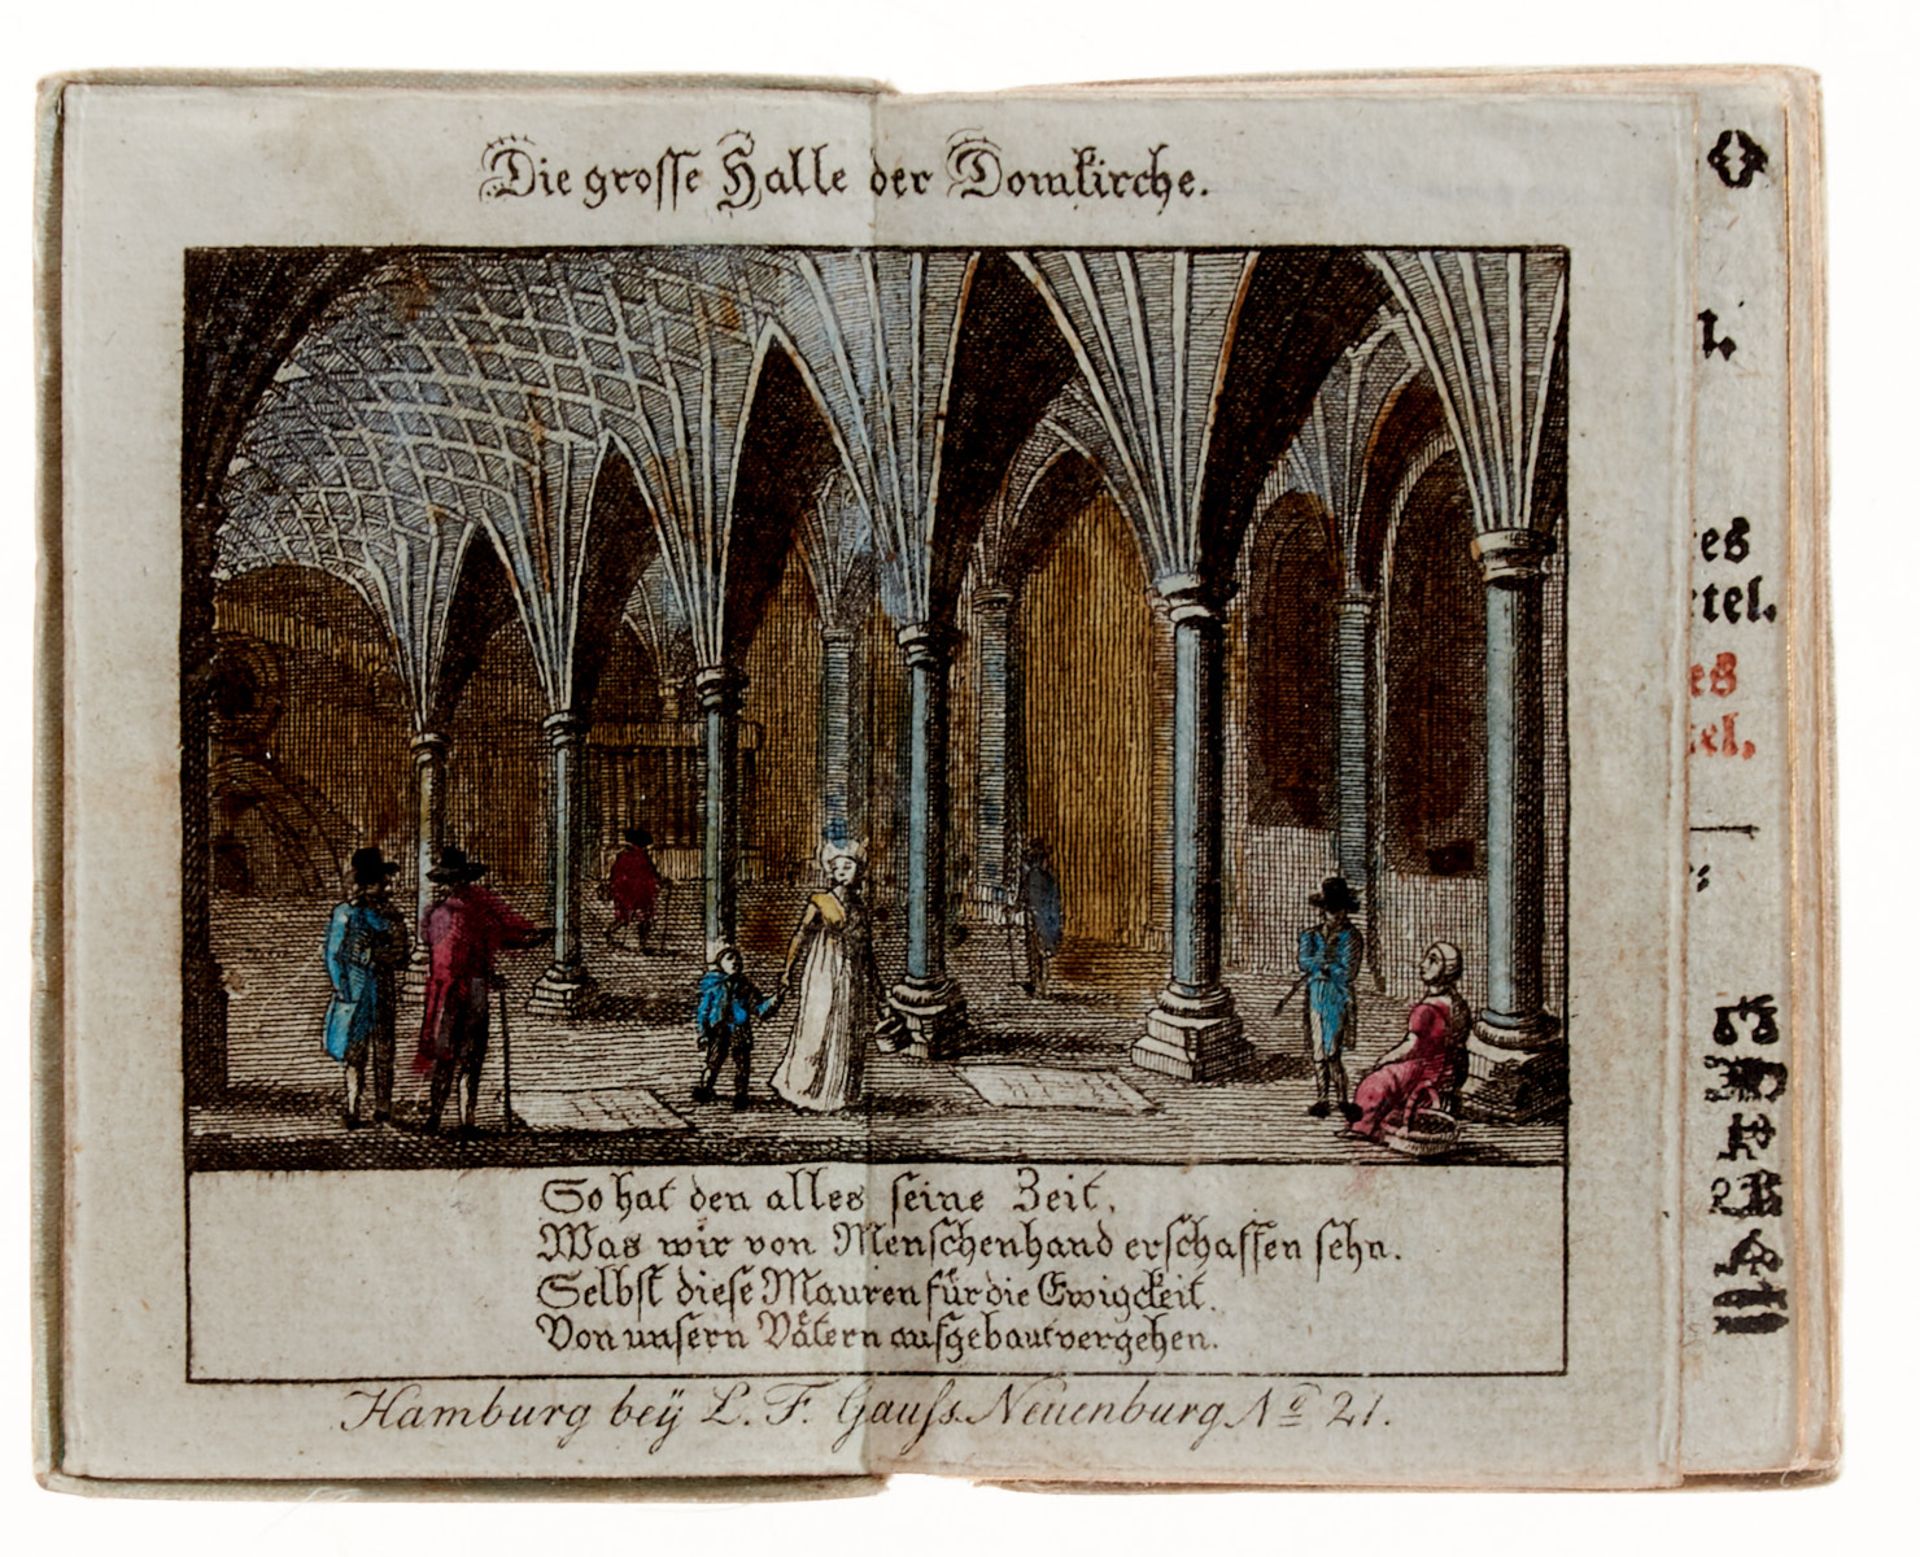 Die grosse Halle der Domkirche.
So hat den alles seine Zeit,
Was wir von Menschenhand erschaffen sehn.
Selbst diese Mauren für die Ewigckeit.
Von unsern Vätern aufgebaut vergehen.
Hamburg beÿ L. F. Gauss. Neuenburg No 21.
l.
es
tel.
es
tel.